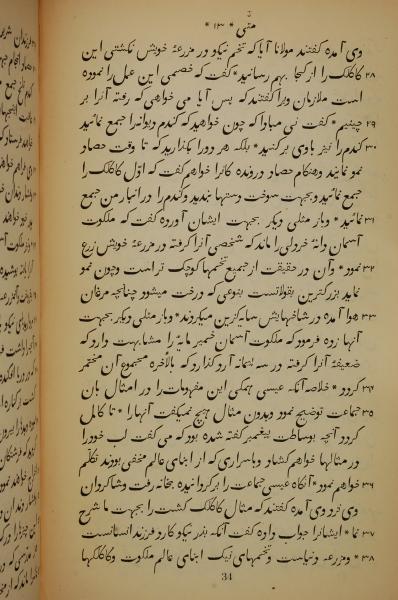 متی * ۱۳ *
وی آمده گفتند مولانا آیا که تخم نیکو در مزرعهٔ خویش نکشتی این
۲۸ کاکلک را از کجا بهم رسانید * گفت که خصمی این عمل را نموده
است ملازمان ویرا گفتند که پس آیا می خواهی که رفته آنرا بر
۲۹ چینیم * گفت نی مبادا که چون خواهید که کندم دیوانه را جمع نمائید
۳۰ کندم را نیز باوی برکنید * بلکه هر دو را بگذارید که تا وقت حصاد
نمو نمایند وهنگام حصاد درونده گانرا خواهم گفت که اوّل کاکلک را
جمع نمائید وبجهت سوخت دستها بندید وکندم را در انبار من جمع
۳۱ نمائید * وباز مثلی دیگر بجهت ایشان آورده گفت که ملکوت
آسمان دانهٔ خردلی را ماند که شخصی آنرا گرفته در مزرعهٔ خویش زرع
۳۲ نمود * وآن در حقیقت از جمیع تخمها کوچک تر است وچون نمو
نماید بزرکترین بقولاتست بنوعی که درخت میشود چنانچه مرغان
۳۳ هوا آمده در شاخهایش سایه گزین میگردند * وباز مثلی دیگر بجهت
آنها زده فرمود که ملکوت آسمان خمیر مایهٔ را مشابهت دارد که
ضعیفهٔ آنرا گرفته در سه پیمانه آرد گذارد که بالأخره مجموع آن مختمر
۳۴ گردد * خلاصه آنکه عیسی همگی این مقدمات را در امثال بان
۳۵ جماعت توضیح نمود وبدون مثال هیچ نمیگفت آنها را * تا کامل
گردد آنچه بوساطت پیغمبر گفته شده بود که می گفت لب خود را
در مثالها خواهم گشاد وباسراری که از ابنای عالم مخفی بودند تکلّم
۳۶ خواهم نمود * آنگاه عیسی جماعت را برگردانیده بخانه رفت وشاگردان
وی نزد وی آمده گفتند که مثال کاکلک کشت را بجهت ما شرح
۳۷ نما * ایشانرا جواب داده گفت آنکه بذر نیکو کارد فرزند انسانست
۳۸ * ومزرعه دنیاست وتخمهای نیک ابنای عالم ملکوت وکاکلکها
34